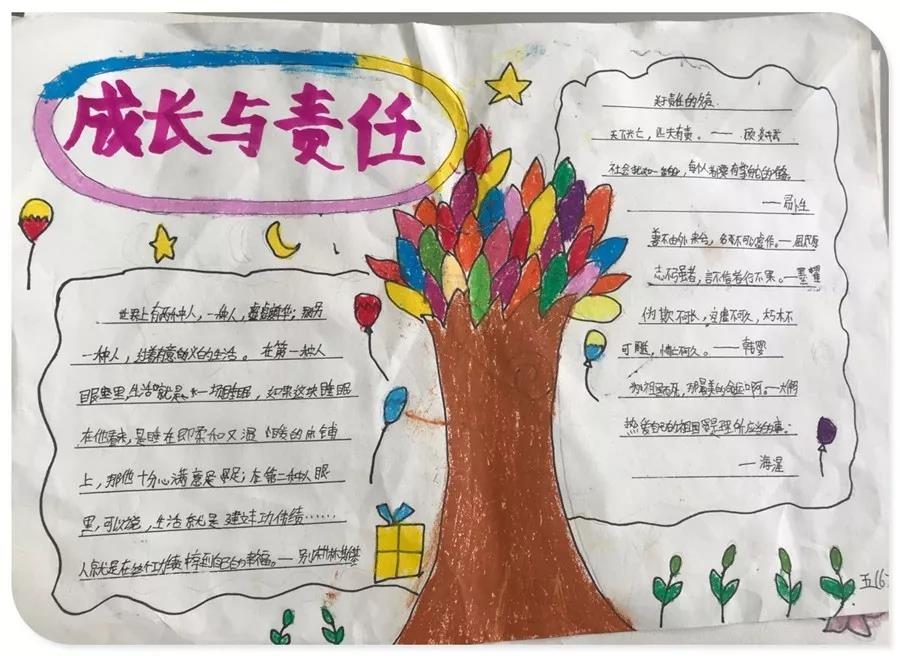 成长与责任
世界上有两种人，一种人，虚度年华；另
一种人，过着有意义的生活。在第一种人
眼里，生活就是一场睡眠，如果这块睡眠
在他看来，是睡在即柔和又温暖的床铺
上，那他十分心满意足；在第二种人眼
里，可以说，生活就是建立功绩……
人就是在这个功绩中得到自己的幸福。—别林斯基
关于责任的名言
天下兴亡，匹夫有责。——顾炎武
社会犹如一条船，每个人都要有掌舵的准备。
——易卜生
善不由外来兮，名不可以虚作。—屈原
志不强者，言不信者行不果。—墨翟
伪欺不可长，空虚不可久，朽木不
可雕，情亡不可久。——韩婴
热爱自己的祖国是理所应当的事。
—海涅
五(6